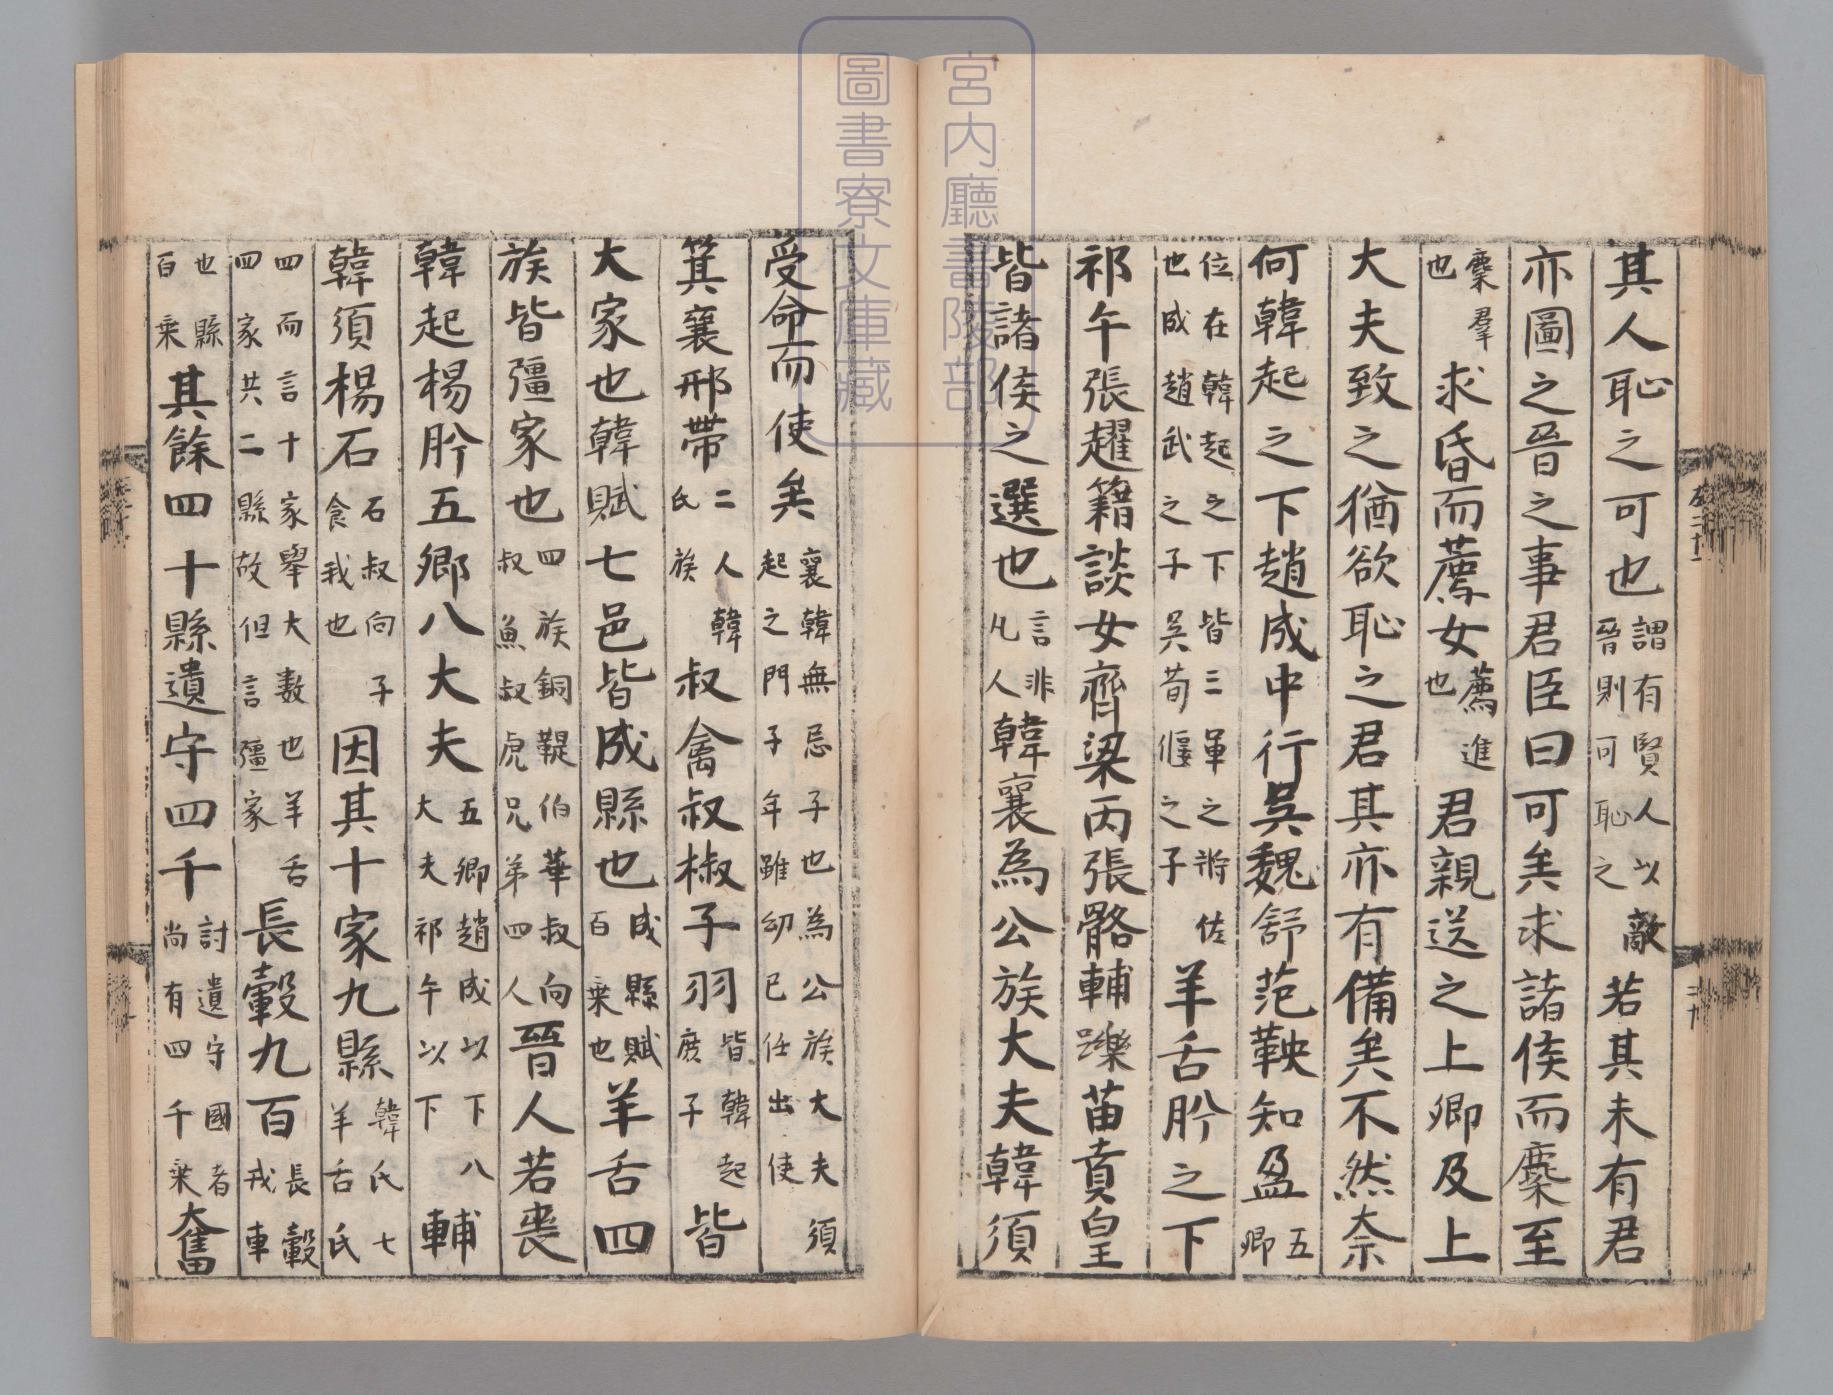 宮内廳書陵部
圖書寮文庫藏
左二十一
二十九
其人恥之可也謂有賢人以敵晉則可恥之若其未有君
亦圖之晉之事君臣曰可矣求諸侯而麇至
麇羣也求昏而薦女薦進也君親送之上卿及上
大夫致之猶欲恥之君其亦有備矣不然奈
何韓起之下趙成中行吳魏舒范鞅知盈五卿
位在韓起之下皆三軍之將佐也成趙武之子吳荀偃之子羊舌肸之下
祁午張趯籍談女齊梁丙張骼輔躒苗賁皇
皆諸侯之選也言非凡人韓襄為公族大夫韓須
受命而使矣襄韓無忌子也為公族大夫須起之門子年雖幼已任出使
箕襄邢帶二人韓氏族叔禽叔椒子羽皆韓起庶子皆
大家也韓賦七邑皆成縣也成縣賦百乗也羊舌四
族皆彊家也四族銅鞮伯華叔向叔魚叔虎兄弟四人晉人若喪
韓起楊肸五卿八大夫五卿趙成以下八大夫祁午以下輔
韓須楊石石叔向子食我也因其十家九縣韓氏七羊舌氏
四而言十家舉大數也羊舌四家共二縣故但言彊家長轂九百長轂戎車
也縣百乗其餘四十縣遺守四千討遺守國者尚有四千乗奮